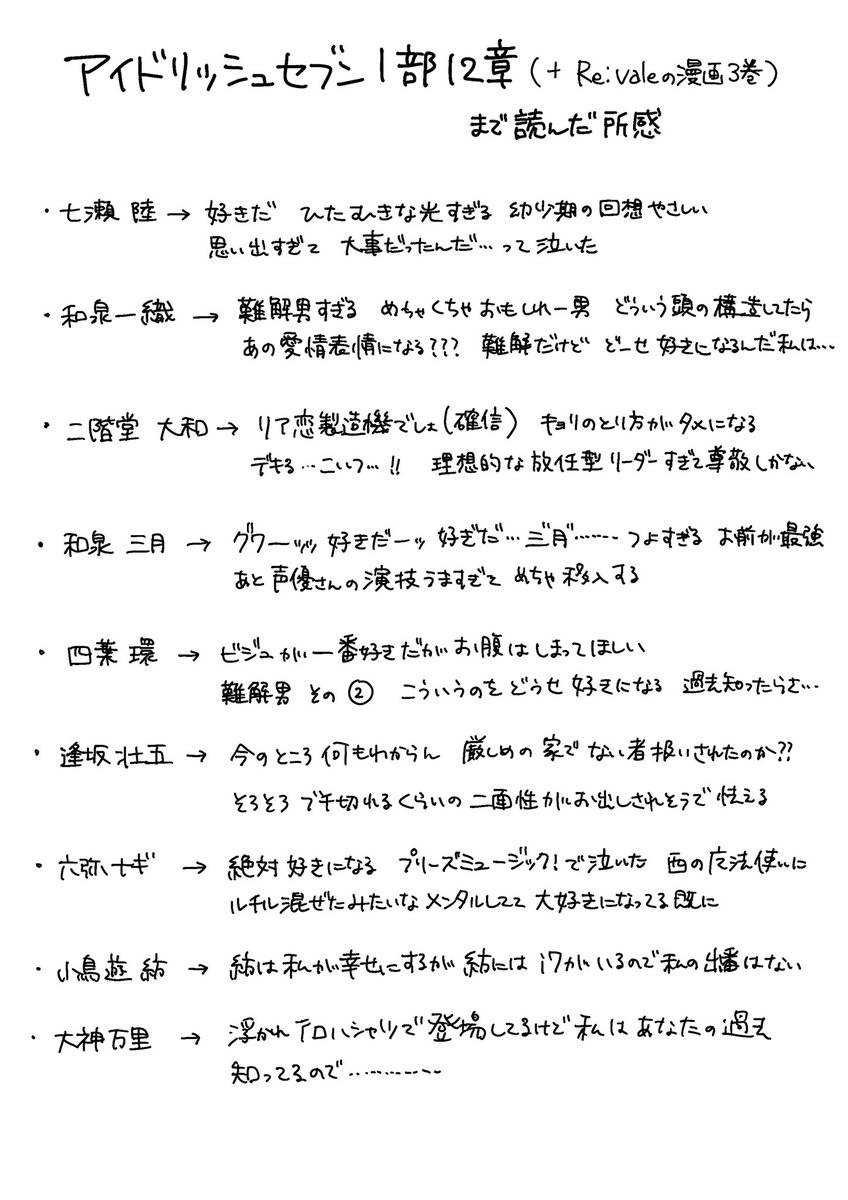 アイドリッシュセブン1部12章(+ Re:valeの漫画3巻)
まで読んだ所感
・七瀬 陸 → 好きだ ひたむきな光すぎる 幼少期の回想やさしい
思い出すぎて 大事だったんだ…って泣いた
・和泉一織 → 難解男すぎる めちゃくちゃおもしれー男 どういう頭の構造してたら
あの愛情表情になる??? 難解だけど どーせ好きになるんだ私は…
・二階堂 大和 → リア恋製造機でしょ(確信) キョリのとり方がダメになる
デキる…こいつ…!! 理想的な放任型リーダーすぎて尊敬しかない
・和泉 三月 → グワーッッ 好きだーッ 好ぎだ…三月゛…… つよすぎる お前が最強
あと声優さんの演技うますぎて めちゃ移入する
・四葉 環 → ビジュが一番好きだがお腹はしまってほしい
難解男 その② こういうのをどうせ好きになる 過去知ったらさ…
・逢坂壮五 → 今のところ何もわからん 厳しめの家でない者扱いされたのか??
そろそろブチ切れるくらいの二面性がお出しされそうで怯える
・六弥ナギ → 絶対好きになる プリーズミュージック!で泣いた 西の魔法使いに
ルチル混ぜたみたいなメンタルしてて 大好きになってる既に
・小鳥遊 紡 → 紡は私が幸せにするが 紡には i7がいるので私の出番はない
・大神万里 → 浮かれアロハシャツで登場してるけど私はあなたの過去
知ってるので…………